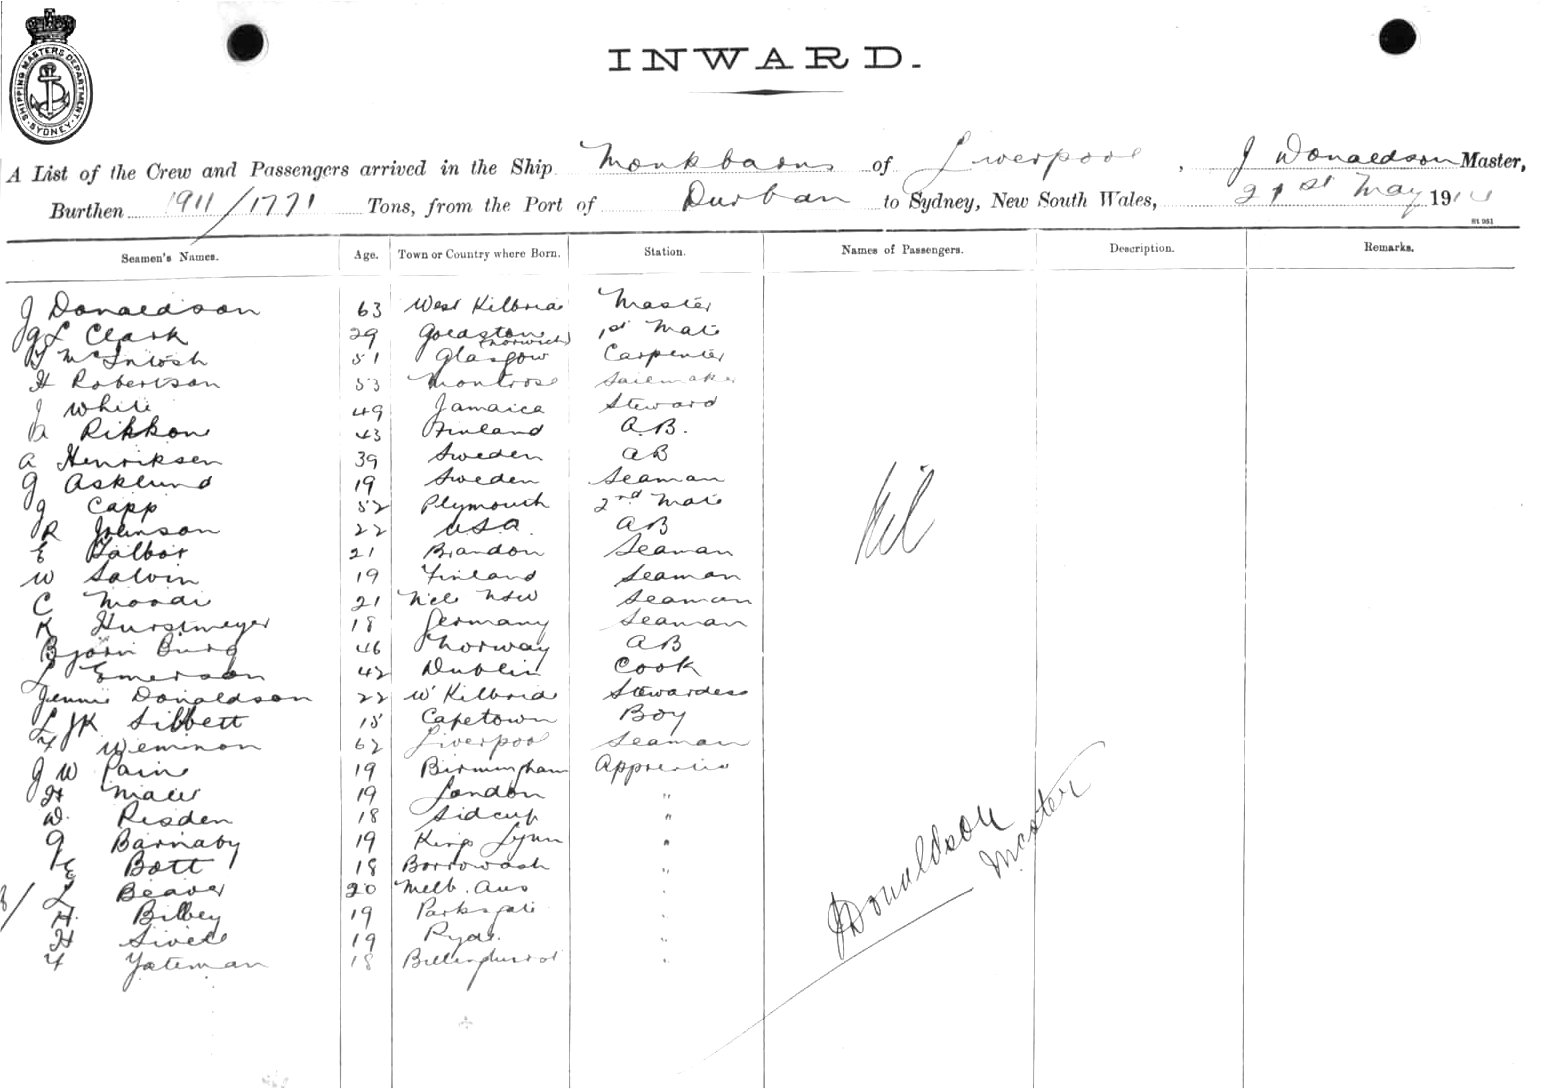 SHIPPING MASTERS DEPARTMENT
SYDNEY
INWARD.
A List of the Crew and Passengers arrived in the Ship Monkbarns of Liverpool, J Donaldson Master,
Burthen 1911/1771 Tons, from the Port of Durban to Sydney, New South Wales, 21st May 191
Seamen's Names. Age. Town or Country where Born. Station. Names of Passengers. Description. Remarks.
J Donaldson 63 West Kilbride Master
L Clark 29 (Norwich) 1st Mate
McIntosh 51 Glasgow Carpenter
H Robertson 53 Montrose Sailmaker
J White 49 Jamaica Steward
A Rikkon 43 Finland A.B.
A Henriksen 39 Sweden AB
G Asklund 19 Sweden Seaman
J Capp 52 Plymouth 2nd Mate
R Johnson 22 USA. AB
E Talbot 21 Brandon Seaman
W Salvin 19 Finland Seaman
C Moodie 21 N'cle NSW Seaman
K Hurstmeyer 18 Germany Seaman
Bjorn Burg 46 Norway AB
L Emerson 42 Dublin Cook
Jennie Donaldson 22 W Kilbride Stewardess
L JK Sibbett 18 Capetown Boy
Wennon 62 Liverpool Seaman
J W Pain 19 Birmingham Apprentice
H 19 London "
W. Risden 18 Sidcup "
G Barnaby 19 Kings Lynn "
E Bott 18 Borrowash "
L Beaver 20 Melb. Aus "
H. Bilbey 19 Parksgate "
H 19 Ryde. "
Yateman 18 "
Nil
J Donaldson
Master